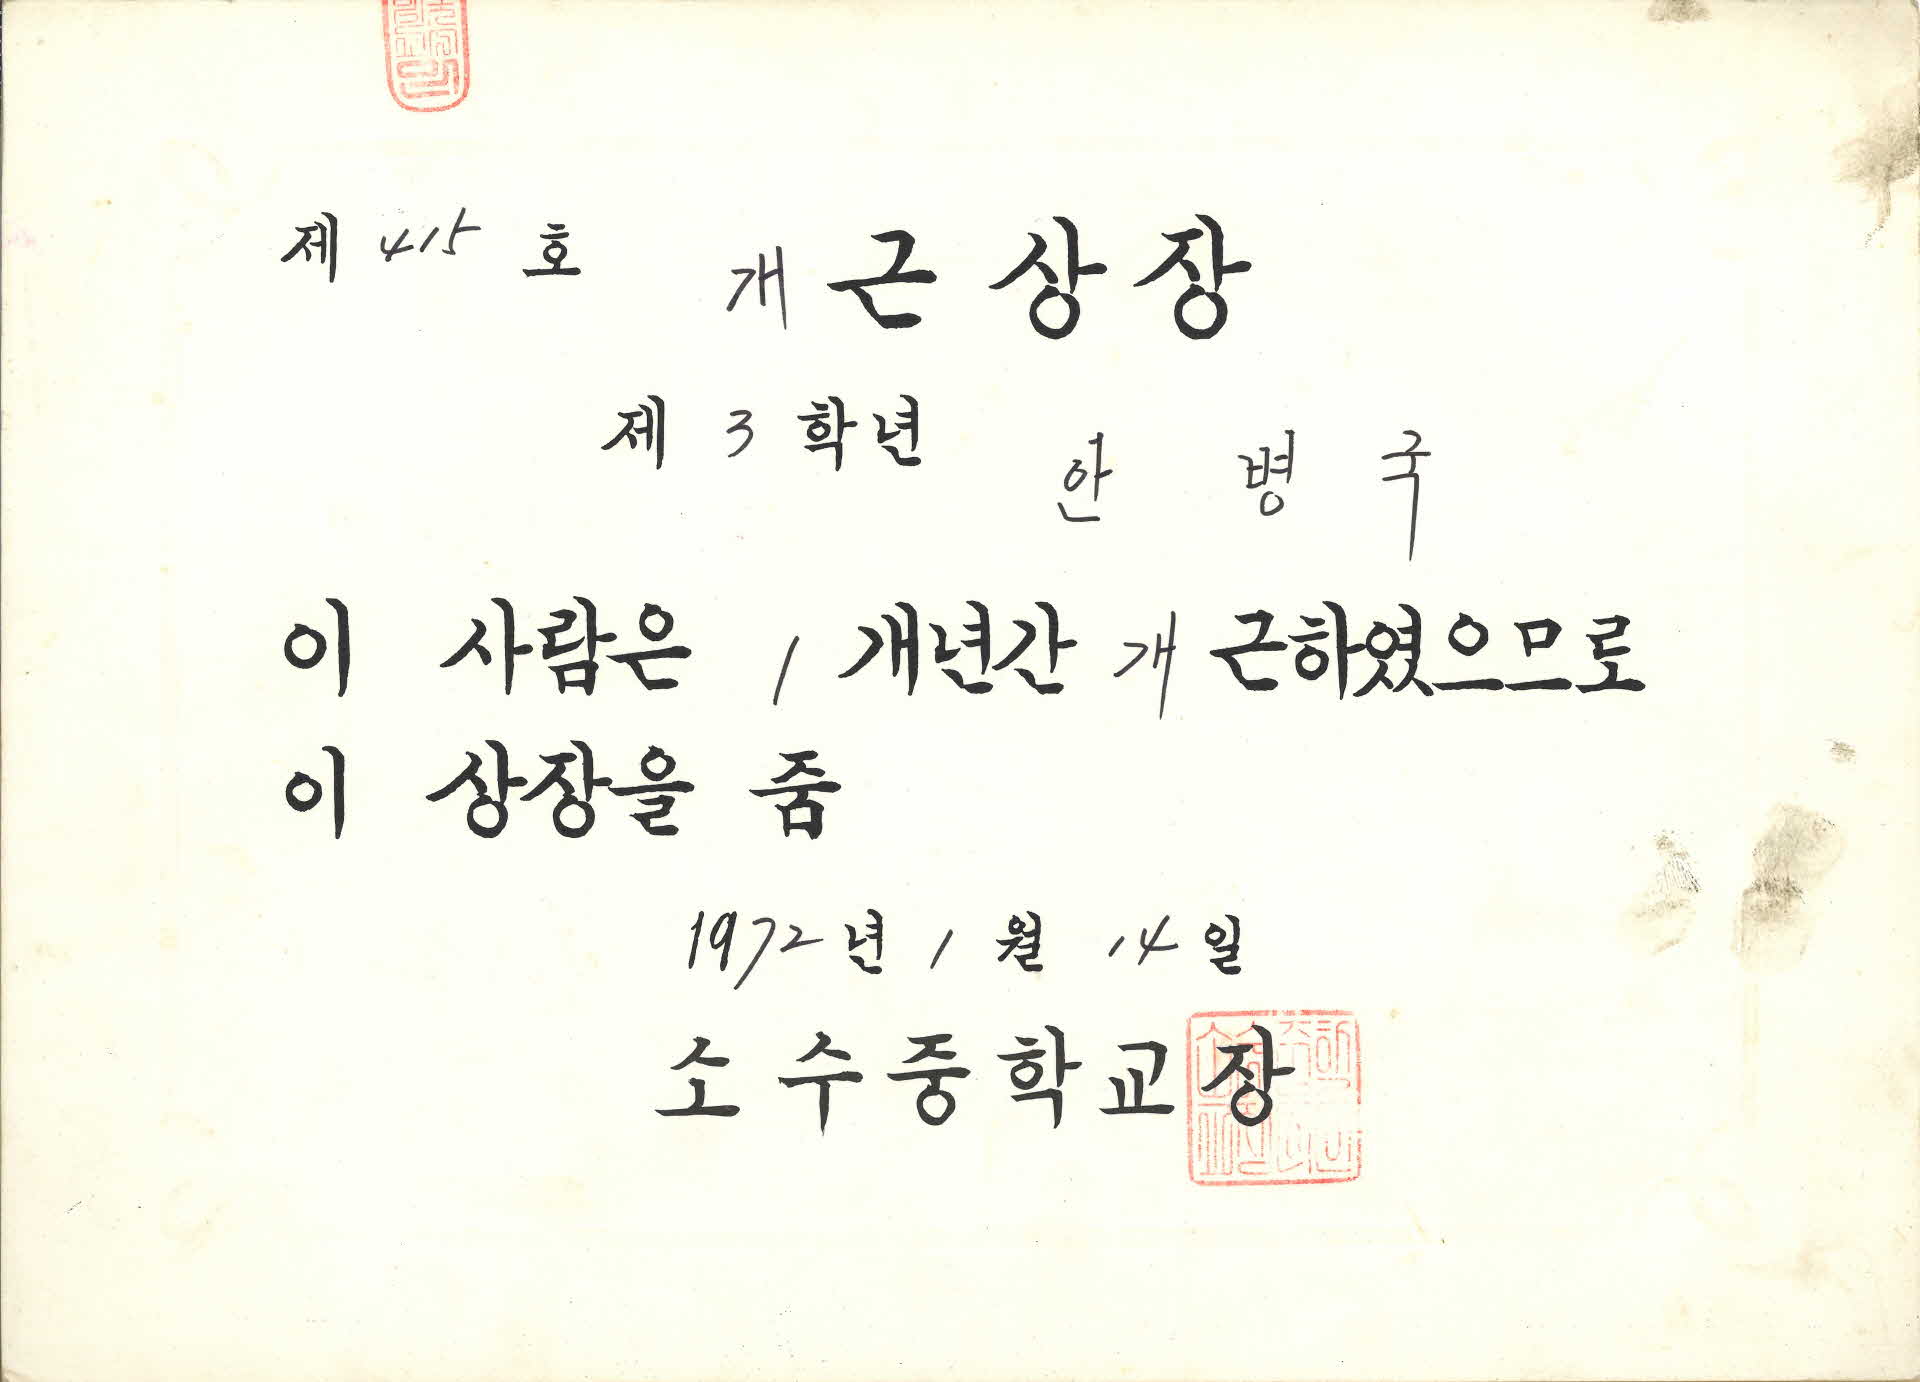 제 415 호 개근상장
제 3 학년 안 병 국
이 사람은 1 개년간 개근하였으므로
이 상장을 줌
1972년 1월 14일
소수중학교장